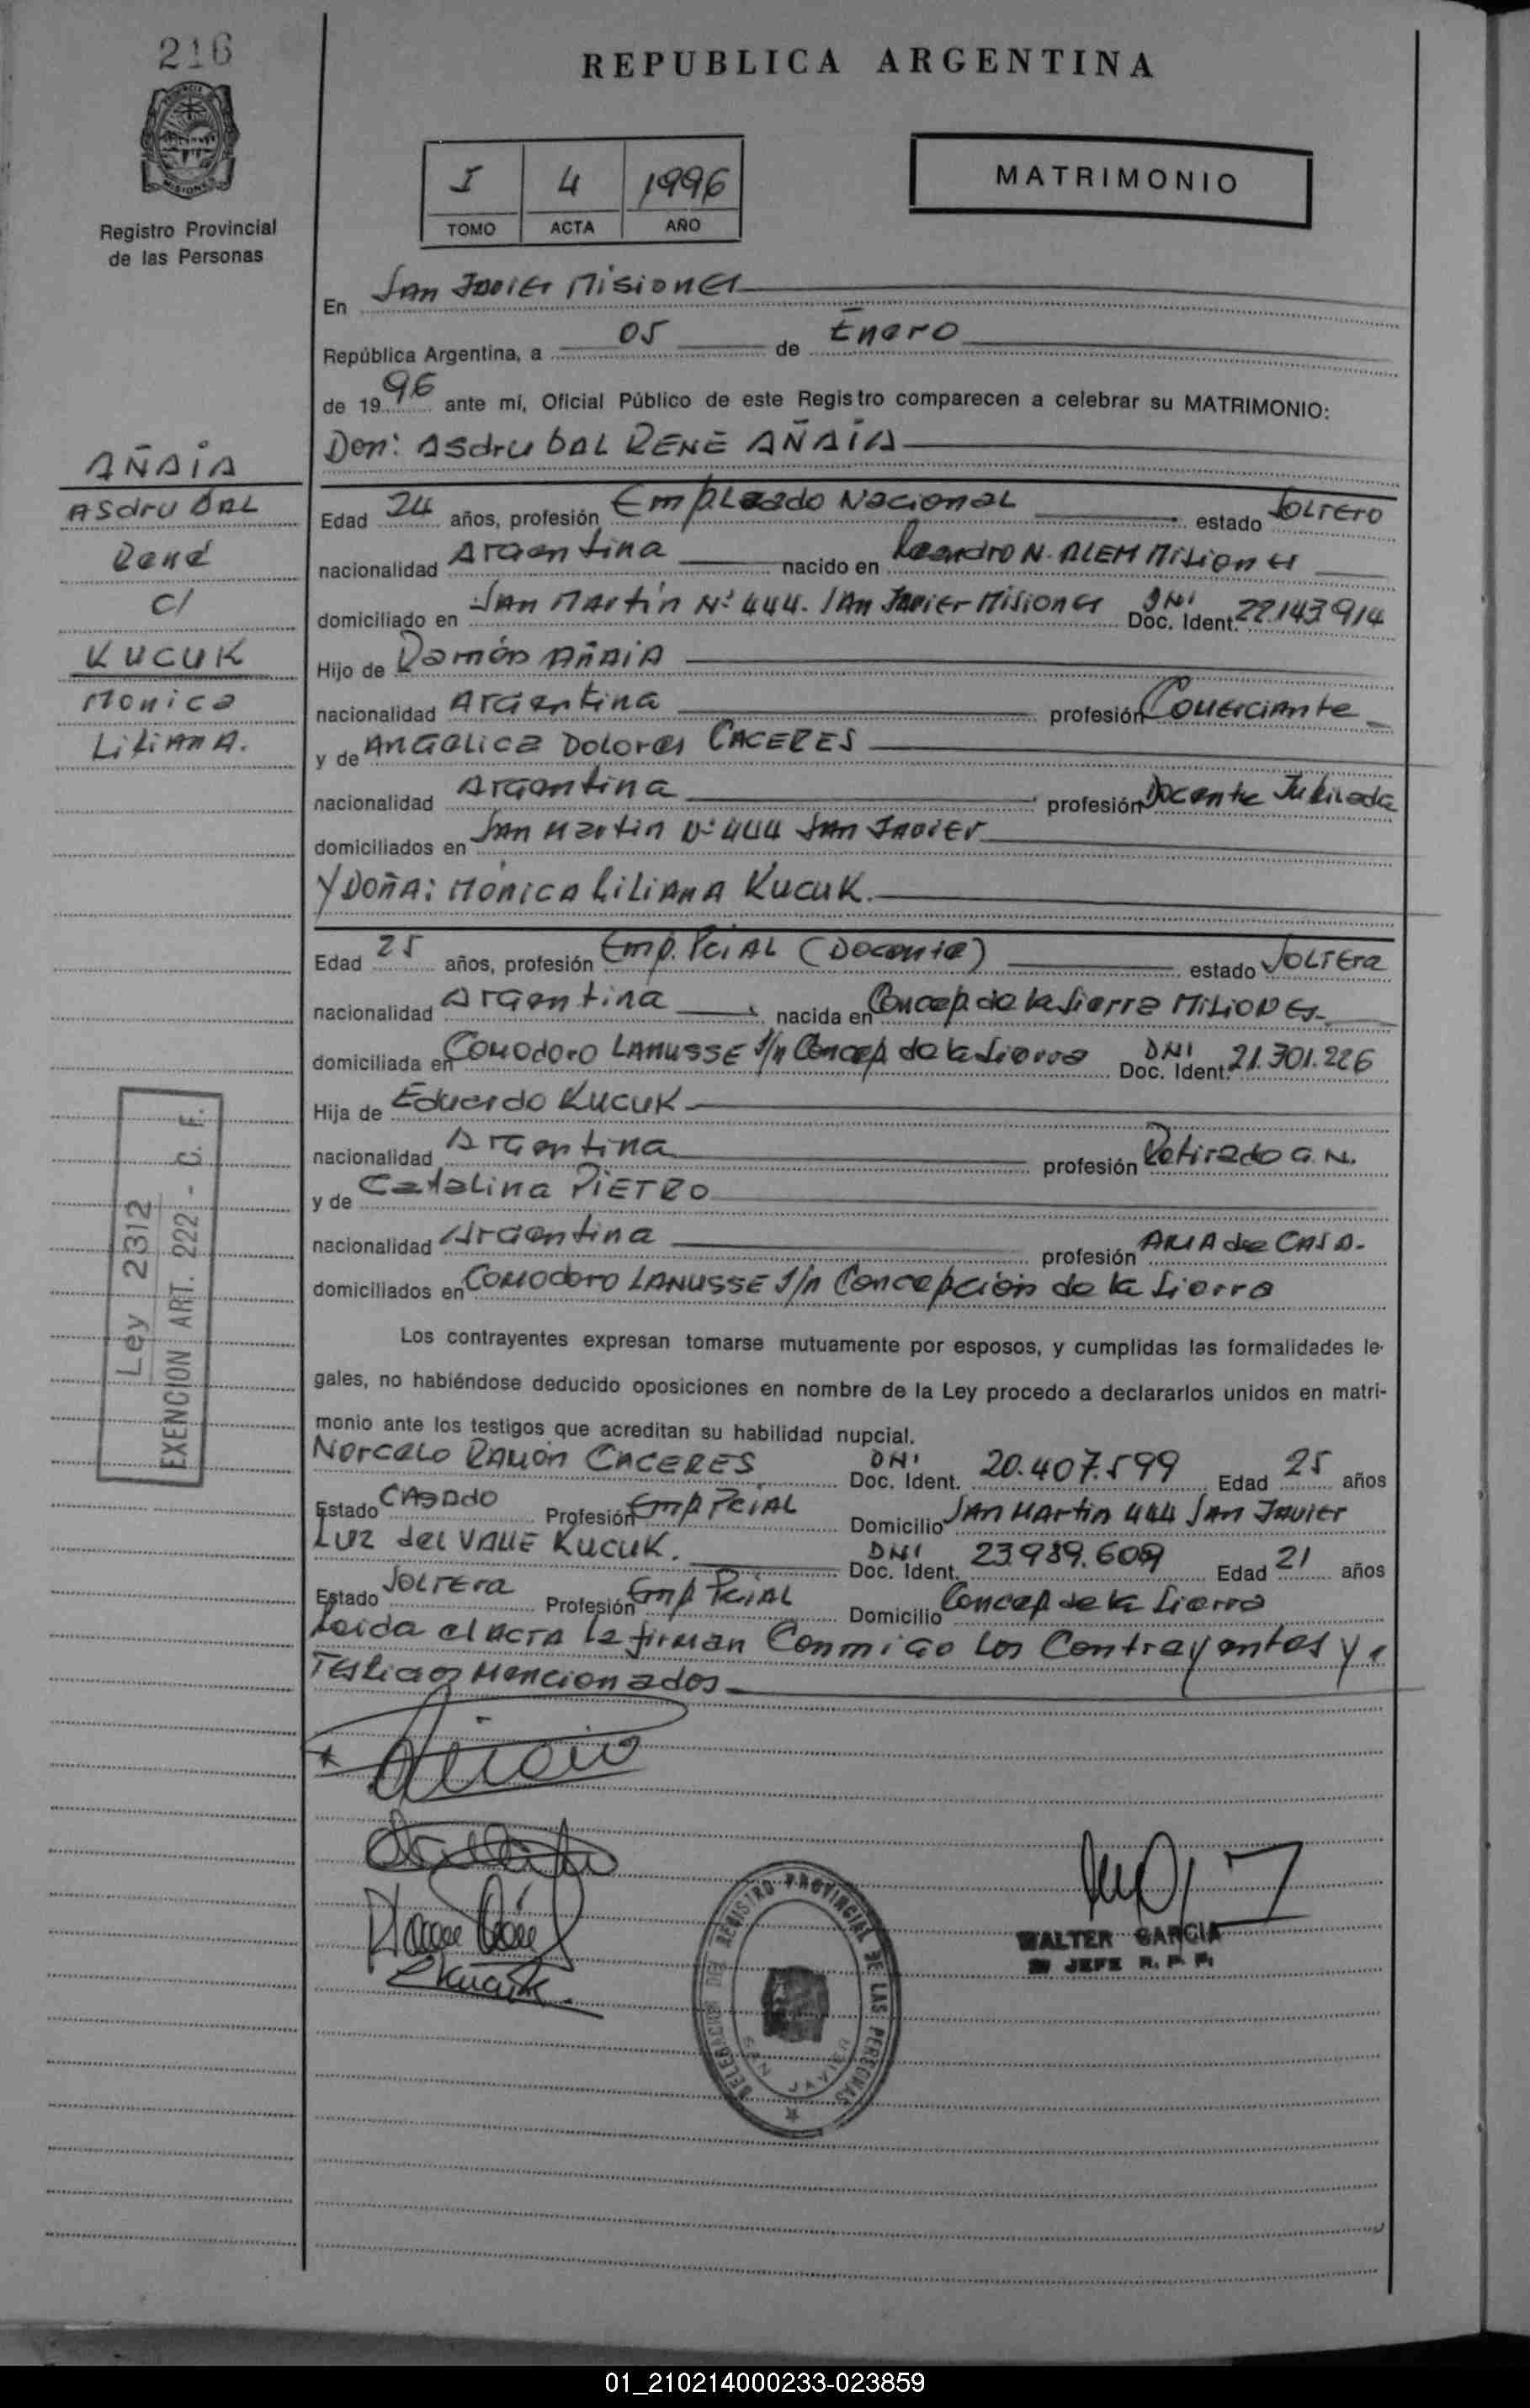 216
REPUBLICA ARGENTINA
MISIONES
Registro Provincial
de las Personas
I 4 1996
TOMO ACTA AÑO
MATRIMONIO
En San Javier Misiones
República Argentina, a 05 de Enero
de 1996 ante mí, Oficial Público de este Registro comparecen a celebrar su MATRIMONIO:
AÑAIA
Asdrubal
René
c/
KUCUK
Monica
Liliana.
Don: Asdrubal RENÉ AÑAIA
Edad 24 años, profesión Empleado Nacional estado Soltero
nacionalidad Argentina nacido en Leandro N. ALEM Misiones
domiciliado en San Martin Nº 444. San Javier Misiones DNI Doc. Ident. 22.143.914
Hijo de Ramón AÑAIA
nacionalidad Argentina profesión Comerciante
y de Angelica Dolores CACERES
nacionalidad Argentina profesión Docente Jubilada
domiciliados en San Martin Nº 444 San Javier
Y DOÑA: MÓNICA LILIANA KUCUK.
Edad 25 años, profesión Emp. Pcial (Docente) estado Soltera
nacionalidad Argentina nacida en Concep. de la Sierra Misiones
domiciliada en Comodoro LANUSSE s/n Concep de la Sierra DNI Doc. Ident. 21.301.226
Hija de Eduardo KUCUK
nacionalidad Argentina profesión Retirado G.N.
y de Catalina PIETRO
nacionalidad Argentina profesión AMA de CASA.
domiciliados en Comodoro LANUSSE s/n Concepción de la Sierra
Ley 2312
EXENCION ART. 222 - C. F.
Los contrayentes expresan tomarse mutuamente por esposos, y cumplidas las formalidades le-
gales, no habiéndose deducido oposiciones en nombre de la Ley procedo a declararlos unidos en matri-
monio ante los testigos que acreditan su habilidad nupcial.
Norcelo RAMÓN CACERES DNI Doc. Ident. 20.407.599 Edad 25 años
Estado CASADO Profesión Emp Pcial Domicilio San Martin 444 San Javier
LUZ del VALLE KUCUK. DNI Doc. Ident. 23.989.609 Edad 21 años
Estado Soltera Profesión Emp Pcial Domicilio Concep de la Sierra
Leida el acta la firman Conmigo los Contrayentes y
Testigos Mencionados
WALTER GARCIA
JEFE R. P. P.
DELEGACION DEL REGISTRO PROVINCIAL DE LAS PERSONAS
SAN JAVIER
01_210214000233-023859